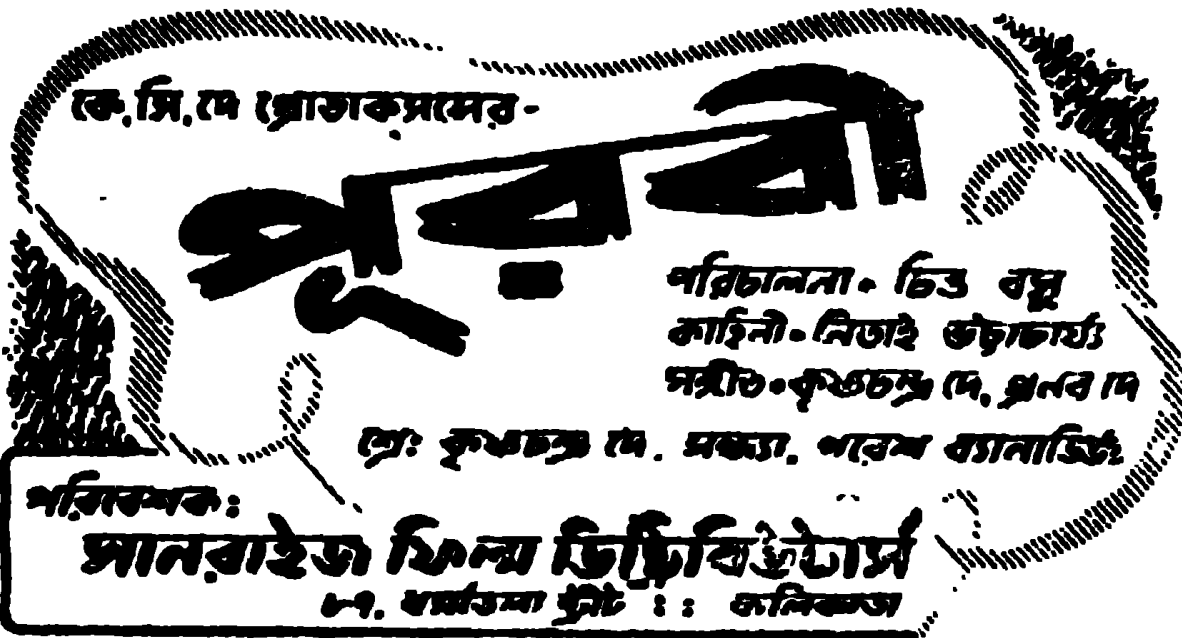 কে.সি.দে প্রোডাকসন্সের-
পূরবী
পরিচালনা • চিত্ত বসু
কাহিনী • নিতাই ভট্টাচার্য্য
সঙ্গীত • কৃষ্ণচন্দ্র দে, প্রনব দে
শ্রেঃ কৃষ্ণচন্দ্র দে. সন্ধ্যা. পরেশ ব্যানার্জি
পরিবেশক:
সানরাইজ ফিল্ম ডিষ্ট্রিবিউটার্স
৮৭, ধর্ম্মতলা ষ্ট্রীট : : কলিকাতা